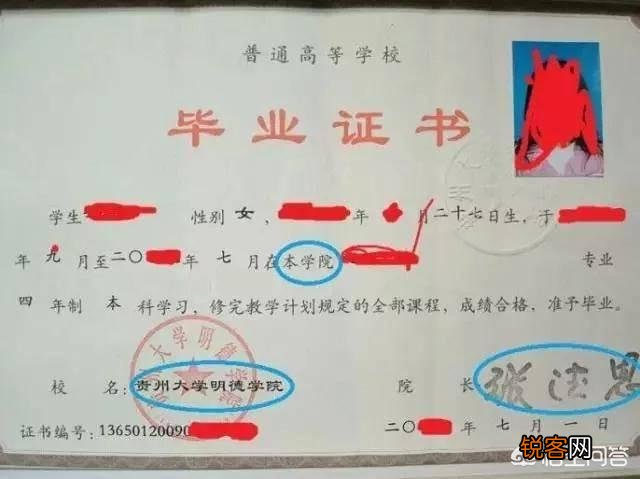 普通高等学校
毕业证书
学生 性别 女 , 年 月二十七日生,于
年 九 月至二〇 年 七 月在本学院 专业
四 年制 本 科学习,修完教学计划规定的全部课程,成绩合格,准予毕业。
校 名:贵州大学明德学院 院 长
证书编号:13650120090 二〇 年 七 月 一 日
贵州大学明德学院
锐客网
悟空问答